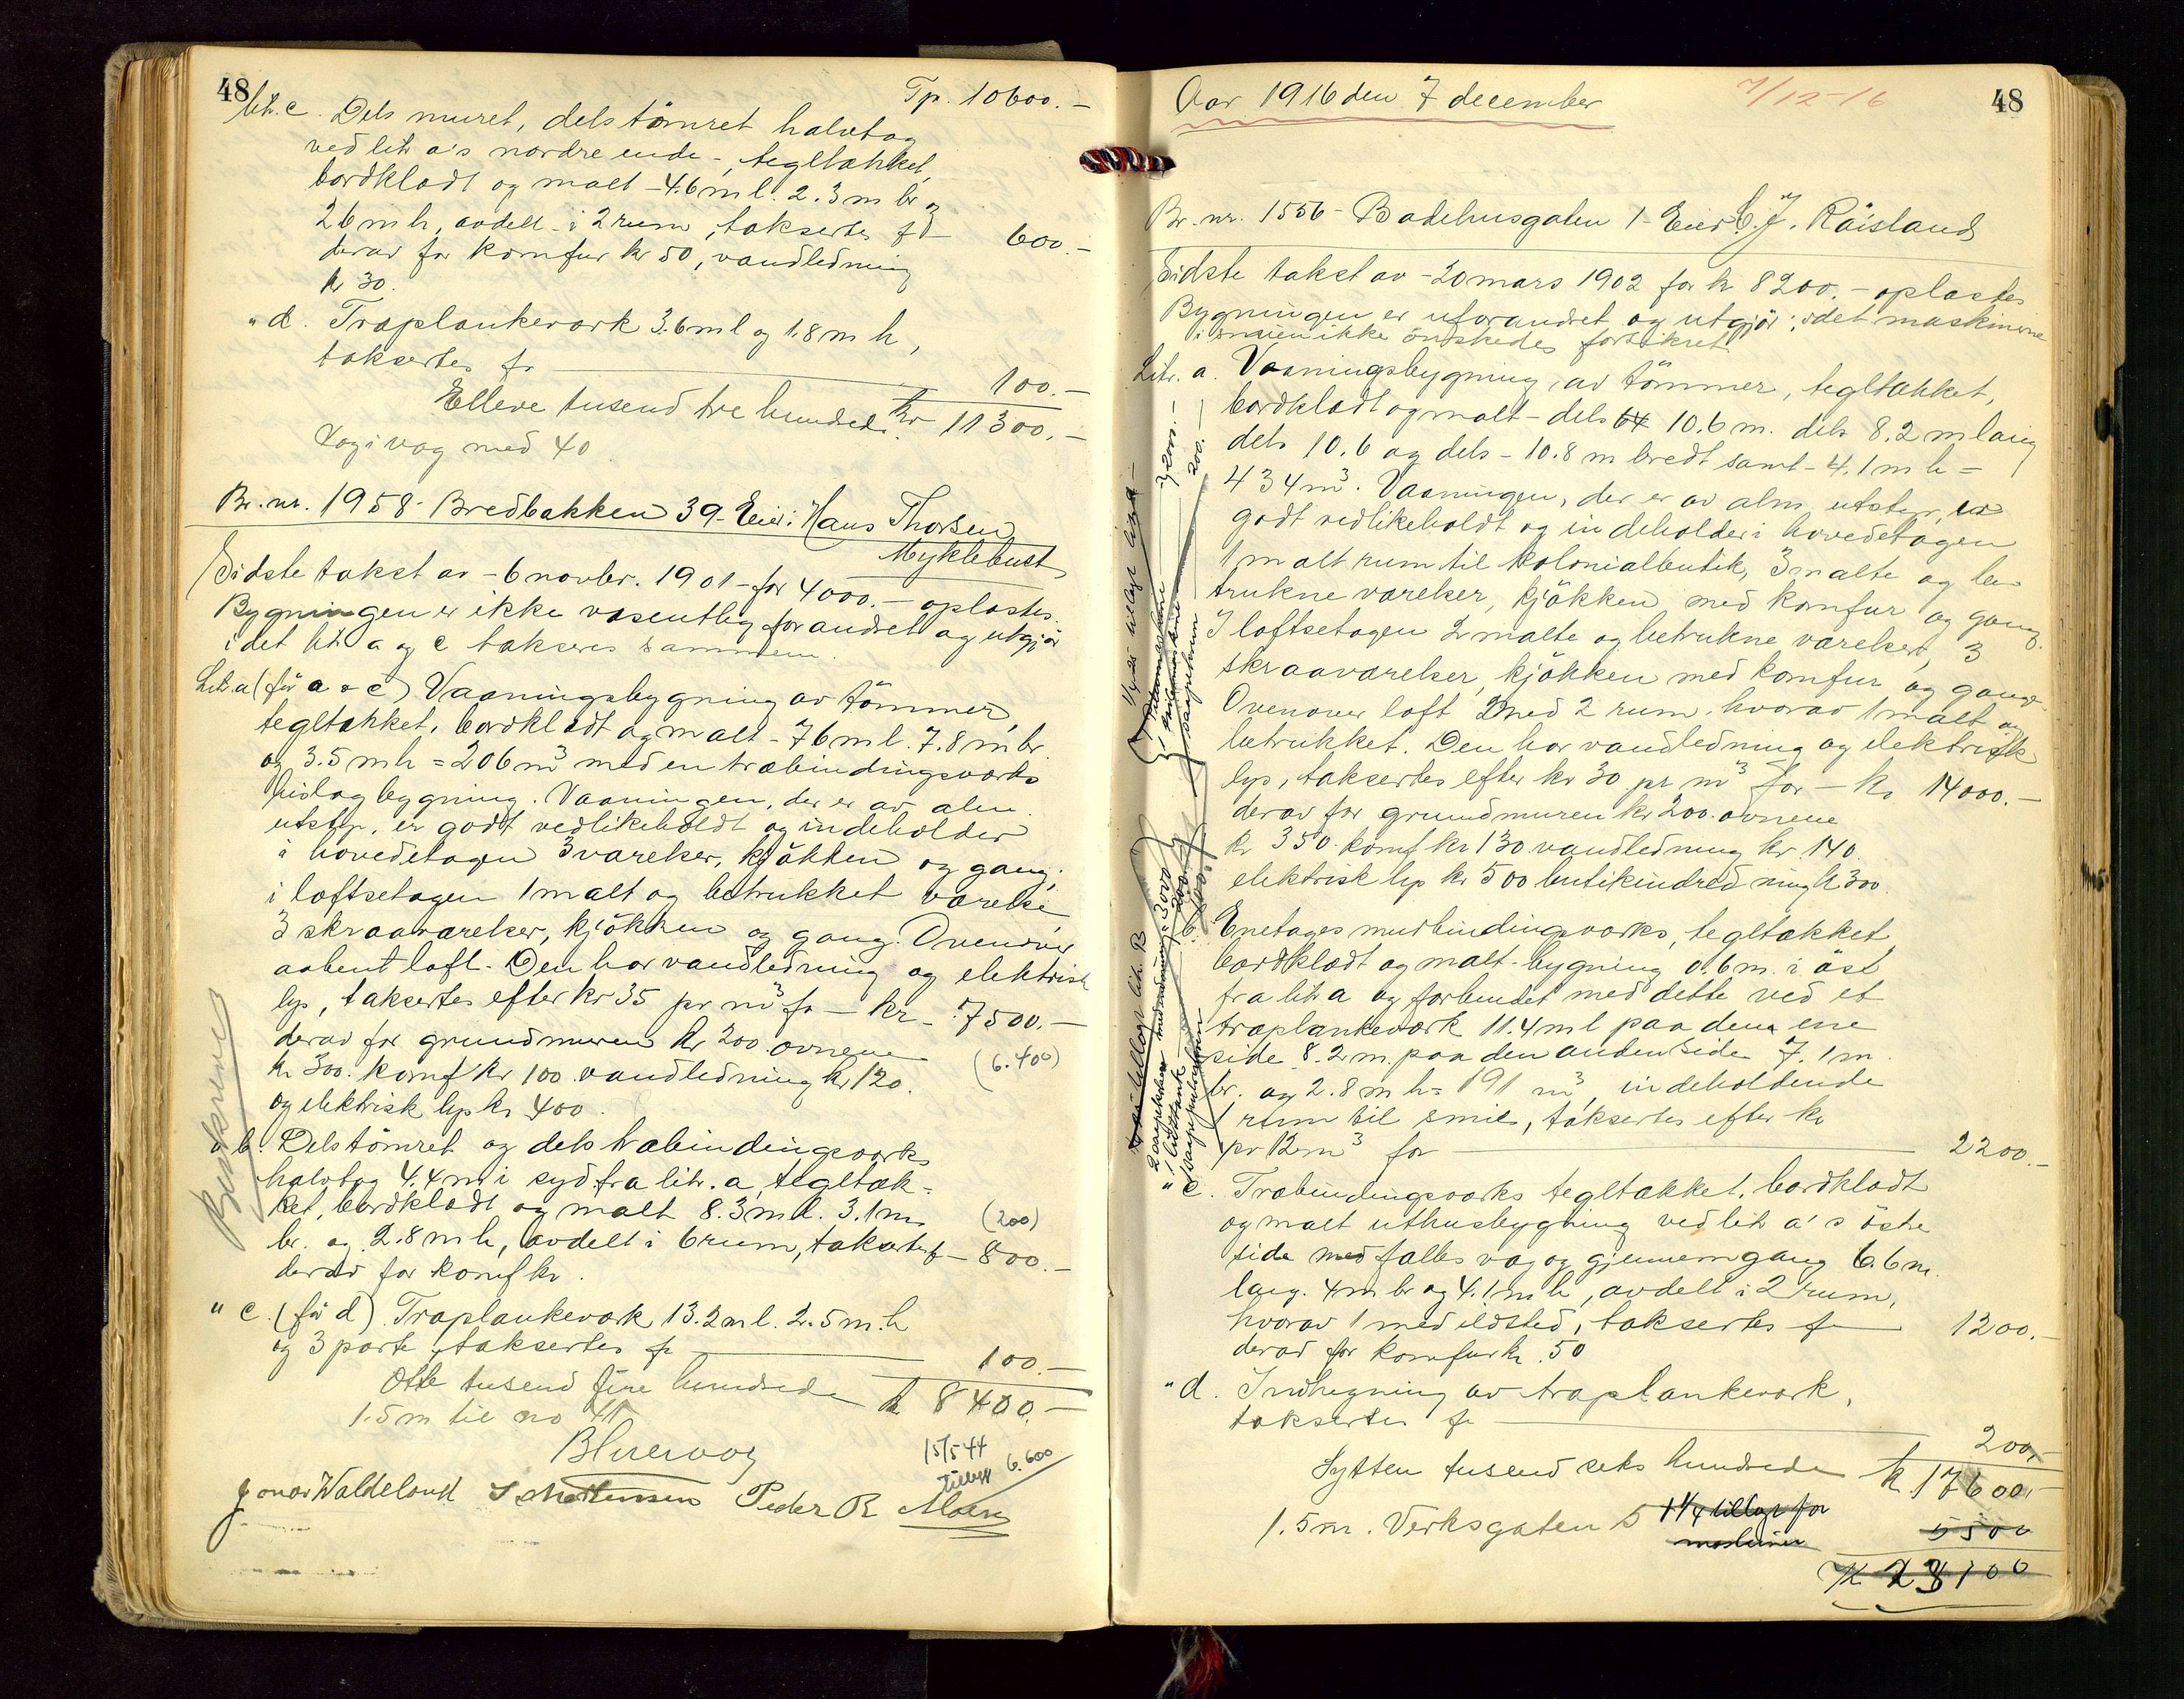 48
Tp. 10600.-
Litr. c. Dels muret, dels tömret halvtag
ved litr a's nordre ende -, tegltækket,
bordklædt og malt - 4.6 m l. 2.3 m br og
2.6 m h, avdelt i 2 rum, taksertes fr - 600.-
derav for komfur kr 50, vandledning
kr 30.
" d. Træplankeværk 3.6 m l og 1.8 m h,
taksertes fr 100.-
Elleve tusend tre hundrede Kr 11300.-
Log i væg med 40
Br. nr. 1958 - Bredbakken 39 - Eier: Hans Thorsen
Myklebust
Sidste takst av - 6 novbr. 1901 - for 4000.- oplæstes.
Bygningen er ikke væsentlig forandret og utgjör
idet litr a og c takseres sammen.
Litr. a (för a & c) Vaaningsbygning av tömmer,
tegltækket, bordklædt og malt - 7.6 m l. 7.8 m br
og 3.5 m h = 206 m³ med en træbindingsverks
bislagbygning. Vaaningen, der er av alm.
utstyr, er godt vedlikeholdt og indeholder
i hovedetagen 3 værelser, kjökken og gang,
i loftsetagen 1 malt og betrukket værelse
3 skraaværelser, kjökken og gang. Ovenover
aabent loft. Den har vandledning og elektrisk
lys, taksertes efter kr 35 pr m³ fr - kr - 7500.-
derav for grundmuren kr 200. ovnene (6.400)
kr 300. komf kr 100. vandledning kr 120.
og elektrisk lys kr 400.
Beskrevet
" b. Dels tömret og dels træbindingsverks
halvtag 4.4 m i syd fra litr. a, tegltæk-
ket, bordklædt og malt 8.3 m l. 3.1 m (200)
br. og 2.8 m h, avdelt i 6 rum, taksertes fr - 800.-
derav for komf kr.
" c. (för d) Træplankeværk 13.2 m l. 2.5 m. h
og 3 porte, taksertes fr 100.-
Otte tusend fire hundrede kr 8400.-
1.5 m til no 41
BHuervoog
15/5 44
tillegg 6.600
Jonas Waldeland S. Mortensen Peder R. Moen
48
Aar 1916 den 7 december
7/12-16
Br. nr. 1556 - Badehusgaten 1 - Eier C. J. Räisland
Sidste takst av - 20 mars 1902 for kr 8200.- oplæstes
Bygningen er uforandret og utgjör; idet maskinerne
i smien ikke önskedes forsikret
Litr. a. Vaaningsbygning av tömmer, tegltækket,
bordklædt og malt - dels 10.6 m. dels 8.2 m lang
dels 10.6 og dels - 10.8 m bredt samt - 4.1 m h =
434 m³. Vaaningen, der er av alm utstyr, er
godt vedlikeholdt og indeholder i hovedetagen
1 malt rum til kolonialbutik, 3 malte og be-
trukne værelser, kjökken med komfur og gang.
I loftsetagen 2 malte og betrukne værelser, 3
skraaværelser, kjökken med komfur og gang.
Ovenover loft med 2 rum, hvorav 1 malt og
betrukket. Den har vandledning og elektrisk
lys, taksertes efter kr 30 pr m³ for - kr 14000.-
derav for grundmuren kr 200. ovnene
kr 350. komf kr 130 vandledning kr 140.
elektrisk lys kr 500 butikindredning kr 300.
b. Enetages murbindingsverks, tegltækket
bordklædt og malt bygning 0.6 m. i öst
fra litr a og forbundet med dette ved et
træplankeværk 11.4 m l paa den ene
side 8.2 m. paa den anden side 7.1 m
br. og 2.8 m h = 191 m³, indeholdende
1 rum til smie, taksertes efter kr
pr 12 m³ for 2200.-
" c. Træbindingsverks tegltækket, bordklædt
og malt uthusbygning ved litr a's östre
side med fælles væg og gjennemgang 6.6 m.
lang. 4 m br og 4.1 m h, avdelt i 2 rum,
hvorav 1 med ildsted, taksertes fr 1200.-
derav for komfur kr. 50
" d. Indhegning av træplankeværk,
taksertes fr 200.-
Sytten tusend seks hundrede kr. 17600.-
1.5 m. Verksgaten 5 1 1/4 tillegg for
maskiner 5500
Kr 23100